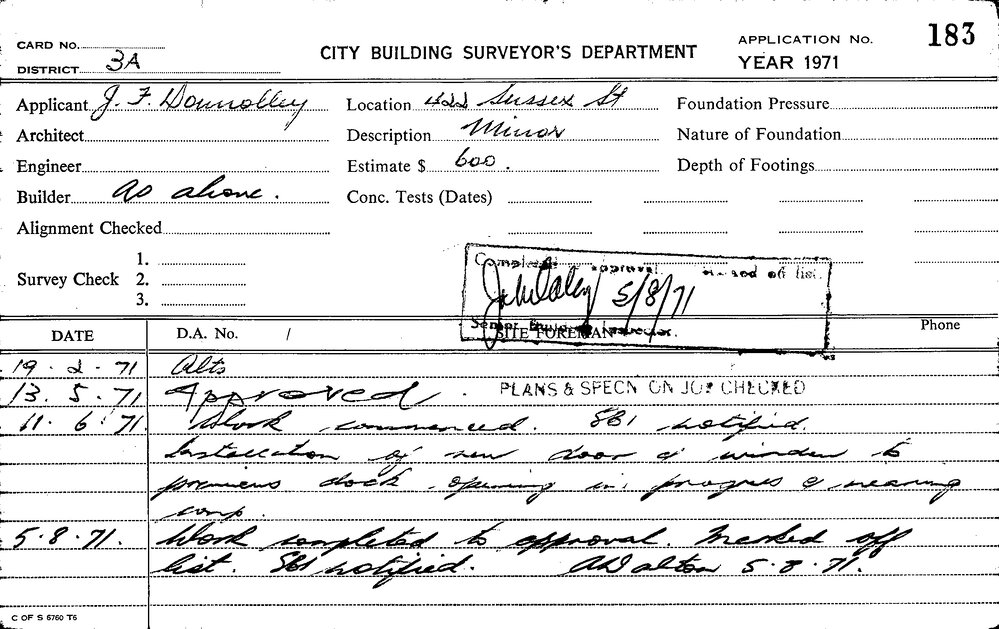 183
CARD No.
CITY BUILDING SURVEYOR'S DEPARTMENT
APPLICATION No.
DISTRICT 3A
YEAR 1971
Applicant J. F. Donnolley Location 422 Sussex St Foundation Pressure
Architect Description Minor Nature of Foundation
Engineer Estimate $ 600. Depth of Footings
Builder As above. Conc. Tests (Dates)
Alignment Checked
Survey Check
1.
2.
3.
approval off list.
5/8/71
DATE D.A. No. / SITE FOREMAN Phone
19. 2. 71 Alts
13. 5. 71 Approved. PLANS & SPECN ON JOB CHECKED
11. 6. 71. Work commenced. SBI notified.
Installation of new door & window to
premiens dock opening in progres & nearing
comp.
5.8.71. Work completed to approval. Marked off
list. SBI notified. A Dalton 5.8.71.
C OF S 6760 T6